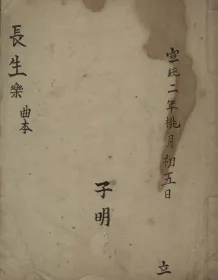 宣統二年桃月初五日 立
子明
長生樂曲本